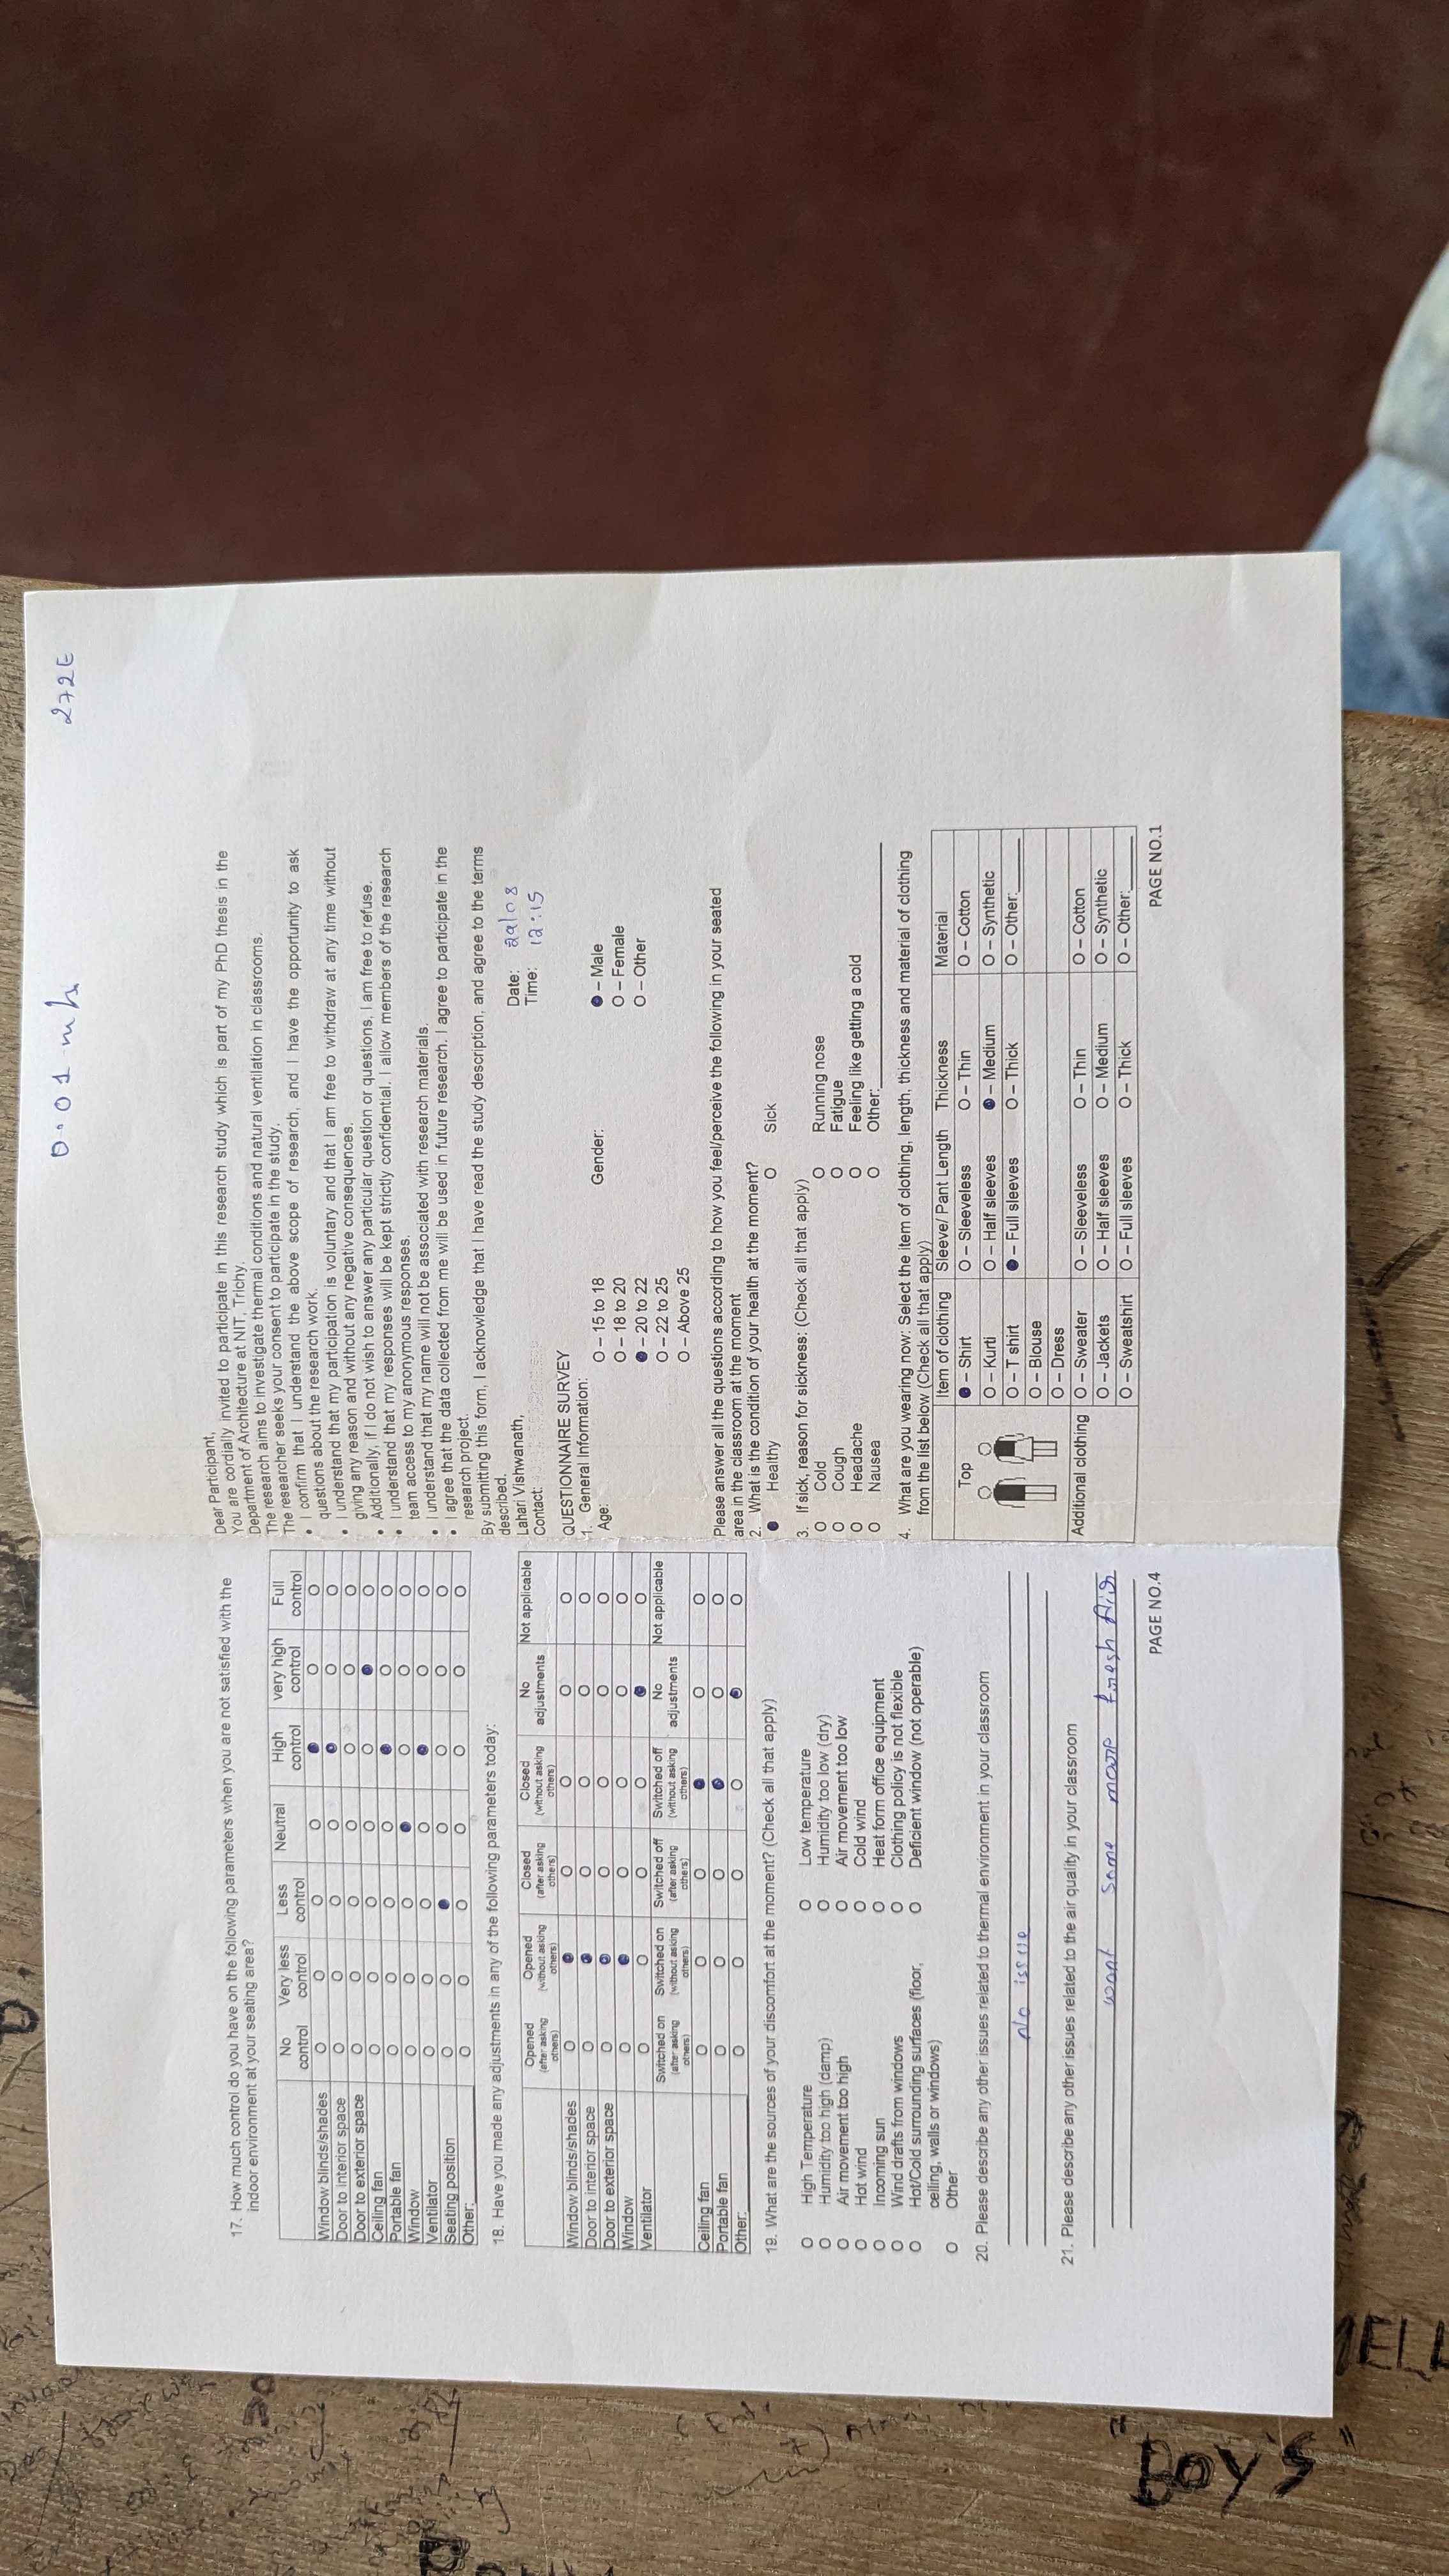 17. How much control do you have on the following parameters when you are not satisfied with the
indoor environment at your seating area?
No control Very less control Less control Neutral High control very high control Full control
Window blinds/shades O O O O ● O O
Door to interior space O O O O ● O O
Door to exterior space O O O O O O O
Ceiling fan O O O O O ● O
Portable fan O O O O ● O O
Window O O O ● O O O
Ventilator O O O O ● O O
Seating position O O ● O O O O
Other: O O O O O O O
18. Have you made any adjustments in any of the following parameters today:
Opened (after asking others) Opened (without asking others) Closed (after asking others) Closed (without asking others) No adjustments Not applicable
Window blinds/shades O ● O O O O
Door to interior space O ● O O O O
Door to exterior space O ● O O O O
Window O ● O O O O
Ventilator O O O O ● O
Switched on (after asking others) Switched on (without asking others) Switched off (after asking others) Switched off (without asking others) No adjustments Not applicable
Ceiling fan O O O ● O O
Portable fan O O O ● O O
Other: O O O O ● O
19. What are the sources of your discomfort at the moment? (Check all that apply)
O High Temperature O Low temperature
O Humidity too high (damp) O Humidity too low (dry)
O Air movement too high O Air movement too low
O Hot wind O Cold wind
O Incoming sun O Heat form office equipment
O Wind drafts from windows O Clothing policy is not flexible
O Hot/Cold surrounding surfaces (floor, O Deficient window (not operable)
ceiling, walls or windows)
O Other
20. Please describe any other issues related to thermal environment in your classroom
No issue
21. Please describe any other issues related to the air quality in your classroom
want some more fresh Air
PAGE NO.4
0.01 m/s
272E
Dear Participant,
You are cordially invited to participate in this research study which is part of my PhD thesis in the
Department of Architecture at NIT, Trichy.
The research aims to investigate thermal conditions and natural ventilation in classrooms.
The researcher seeks your consent to participate in the study.
• I confirm that I understand the above scope of research, and I have the opportunity to ask
questions about the research work.
• I understand that my participation is voluntary and that I am free to withdraw at any time without
giving any reason and without any negative consequences.
• Additionally, if I do not wish to answer any particular question or questions, I am free to refuse.
• I understand that my responses will be kept strictly confidential. I allow members of the research
team access to my anonymous responses.
• I understand that my name will not be associated with research materials.
• I agree that the data collected from me will be used in future research. I agree to participate in the
research project.
By submitting this form, I acknowledge that I have read the study description, and agree to the terms
described.
Lahari Vishwanath,
Contact:
Date: 29/08
Time: 12:15
QUESTIONNAIRE SURVEY
1. General Information:
Age: O – 15 to 18 Gender: ● – Male
O – 18 to 20 O – Female
● – 20 to 22 O – Other
O – 22 to 25
O – Above 25
Please answer all the questions according to how you feel/perceive the following in your seated
area in the classroom at the moment
2. What is the condition of your health at the moment?
● Healthy O Sick
3. If sick, reason for sickness: (Check all that apply)
O Cold O Running nose
O Cough O Fatigue
O Headache O Feeling like getting a cold
O Nausea O Other:
4. What are you wearing now: Select the item of clothing, length, thickness and material of clothing
from the list below (Check all that apply)
Item of clothing Sleeve/ Pant Length Thickness Material
Top ● – Shirt O – Sleeveless O – Thin O – Cotton
O – Kurti O – Half sleeves ● – Medium O – Synthetic
O – T shirt ● – Full sleeves O – Thick O – Other:
O – Blouse
O – Dress
Additional clothing O – Sweater O – Sleeveless O – Thin O – Cotton
O – Jackets O – Half sleeves O – Medium O – Synthetic
O – Sweatshirt O – Full sleeves O – Thick O – Other:
PAGE NO.1
"BOY'S"